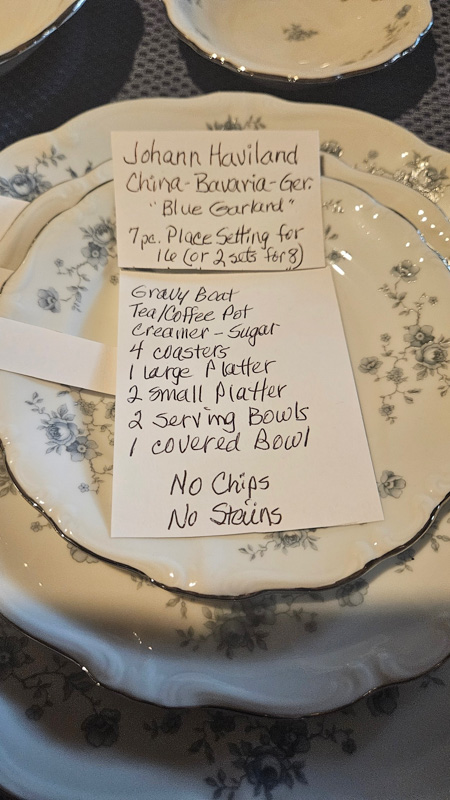 Johann Haviland
China-Bavaria-Ger.
"Blue Garland"
7pc. Place Setting for
16 (or 2 sets for 8)
Gravy Boat
Tea/Coffee Pot
Creamer - Sugar
4 coasters
1 large Platter
2 small Platter
2 serving Bowls
1 covered Bowl
No Chips
No Stains